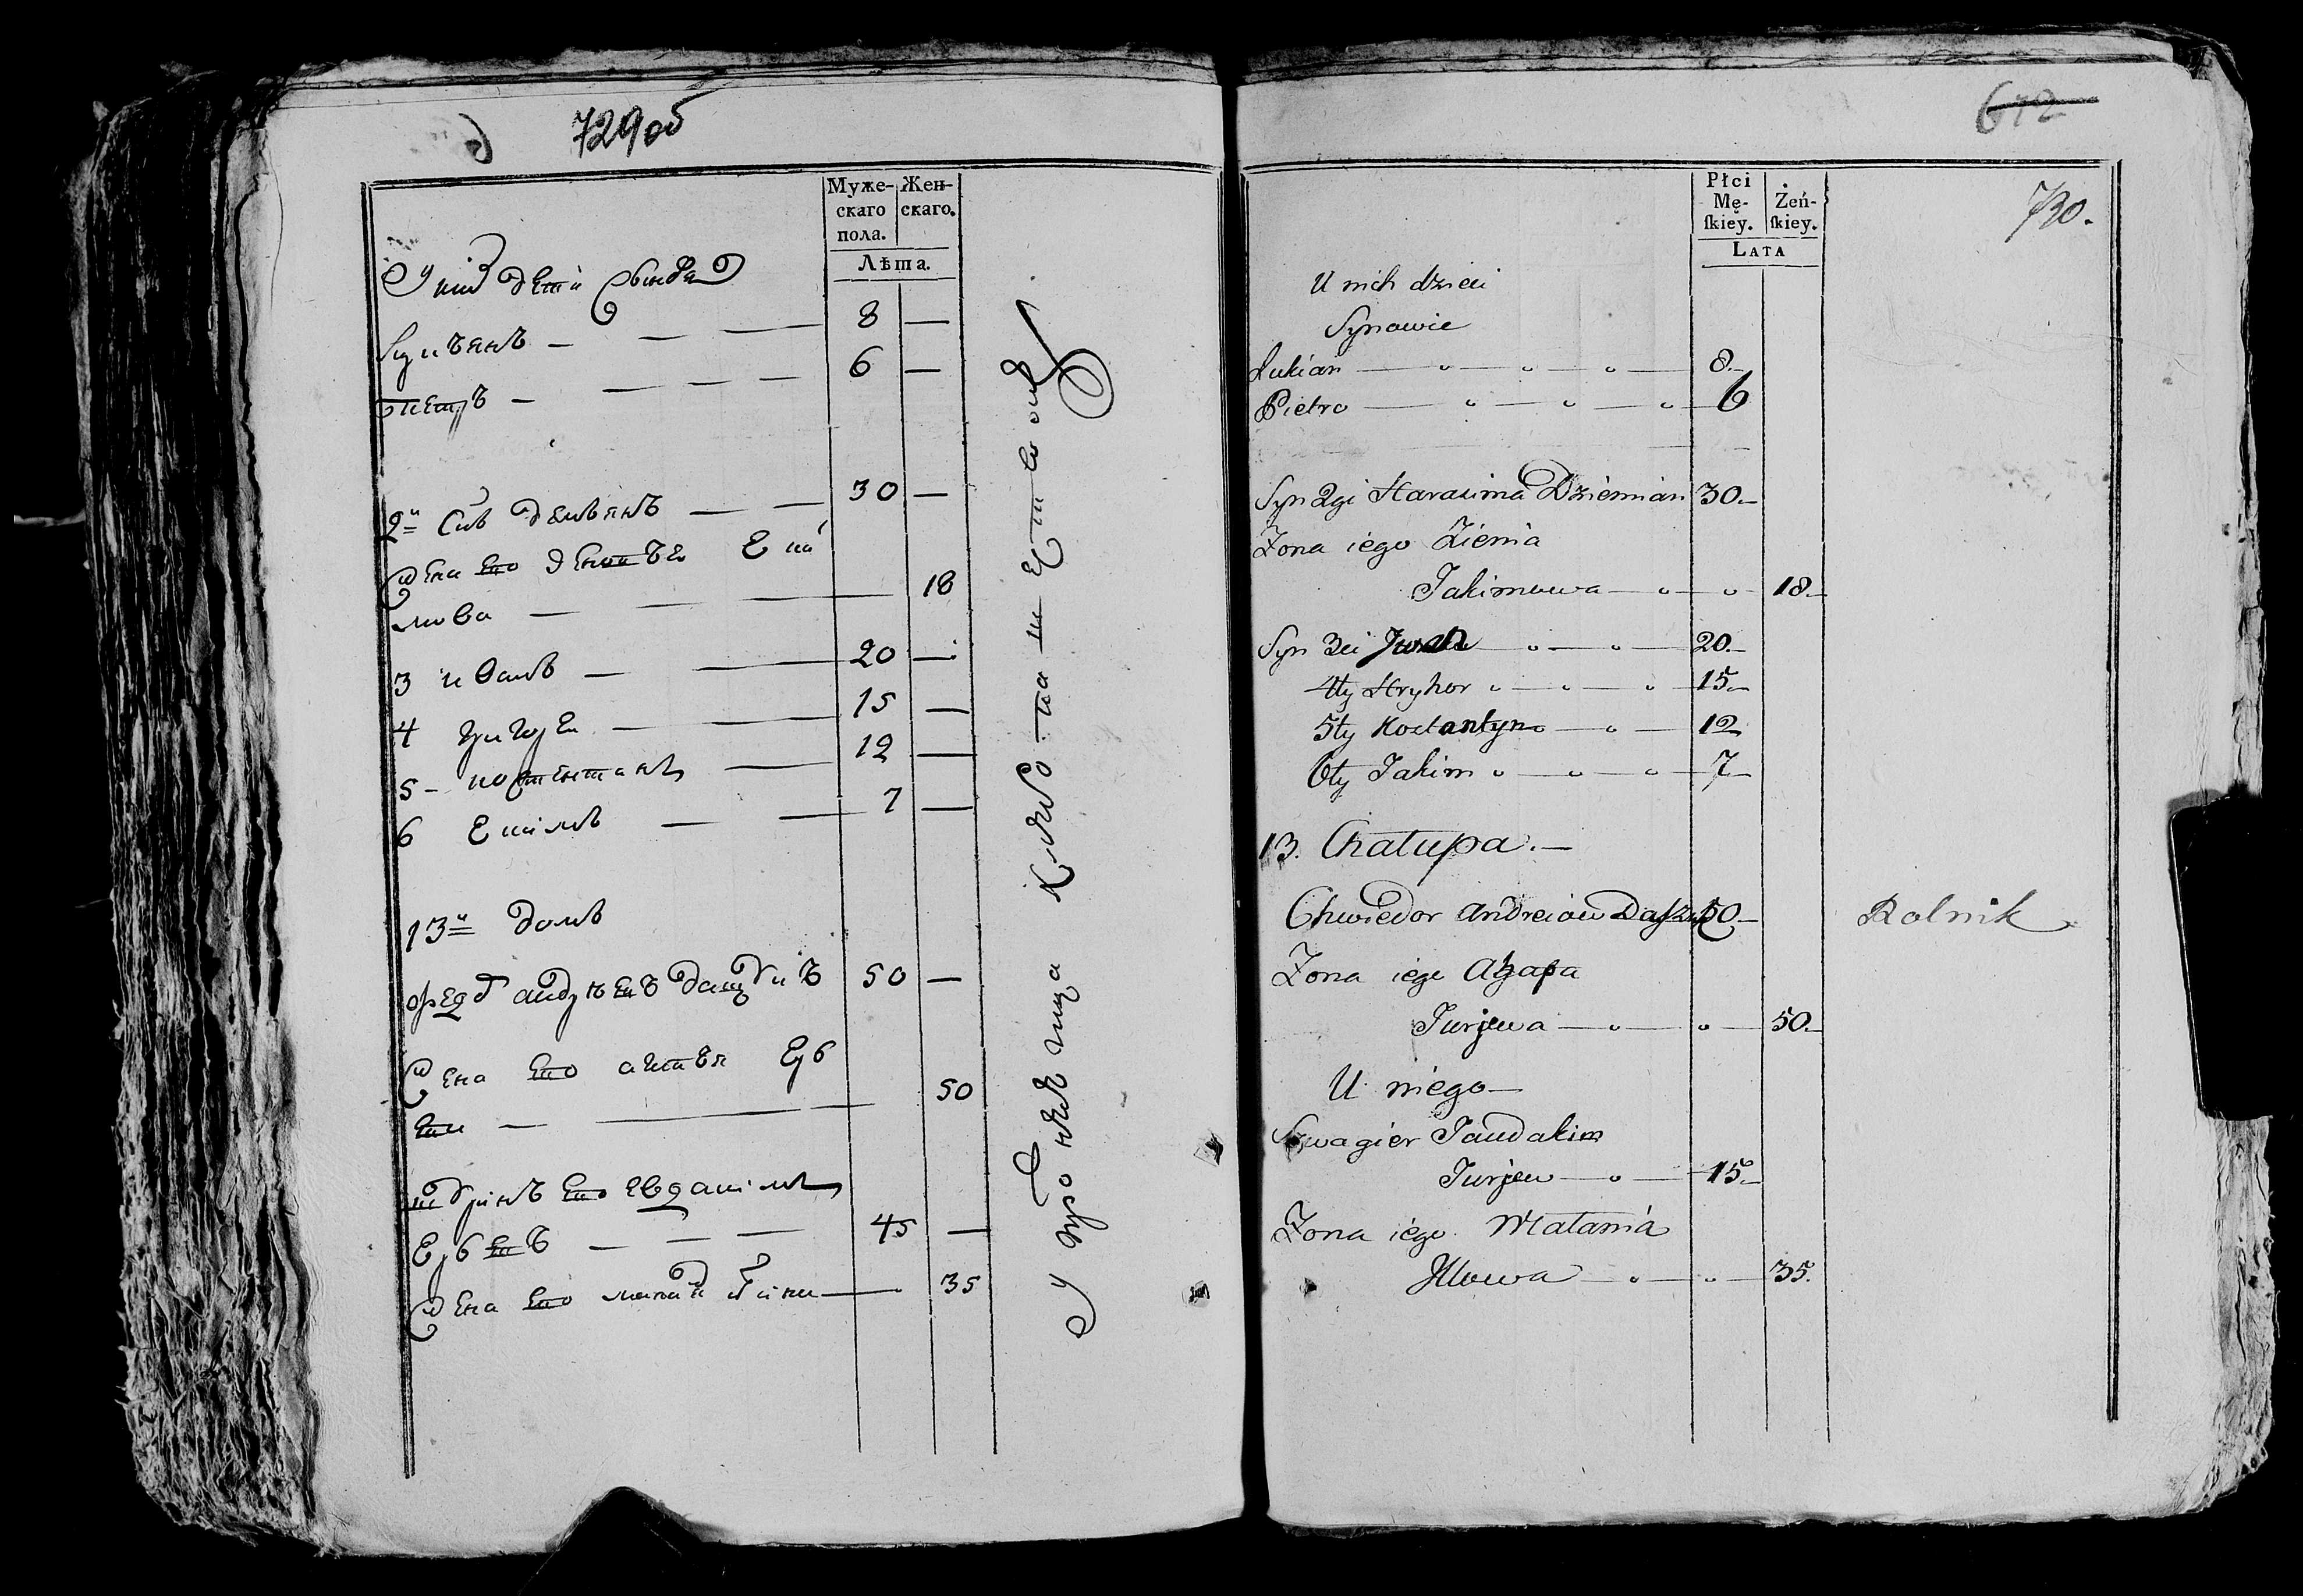 729об
Муже-
скаго
пола.
Жен-
скаго.
Лѣта.
У них дети Сыновя
Лукъянъ — — — 8 —
Петръ — — — — 6 —
2й Снъ демьянъ — — 30 —
Жена Его Зеновъя Еки
мова — — — 18
3 иванъ — — 20 —
4 григорей — — 15 —
5 — костентинъ — 12 —
6 Екимъ — — 7 —
13й домъ
федор андреевъ 50 —
Жена Его агапъя Юрь
ева — — 50
шуринъ Его Евдакимъ
Юрьевъ — — — 45 —
Жена Его маланя — 35
612
730.
Płci
Mę-
ſkiey.
Żeń-
ſkiey.
LATA
U nich dzieci
Synowie
Łukian — 8.—
Pietro — 6
Syn 2gi Harasima Dziemian 30.—
Zona iego Zienia
Jakimowa — 18.—
Syn 3ci Jwan — 20.—
4ty Hryhor — 15.—
5ty Kostantyn — 12
6ty Jakim — 7.—
13. Chałupa.—
Chwiedor Andreiow 50.— Rolnik
Zona iego Ahapa
Jurjewa — 50.—
U niego —
Szwagier Jaudakim
Jurjew — 15.—
Zona iego Matania
Jllowa — 35.